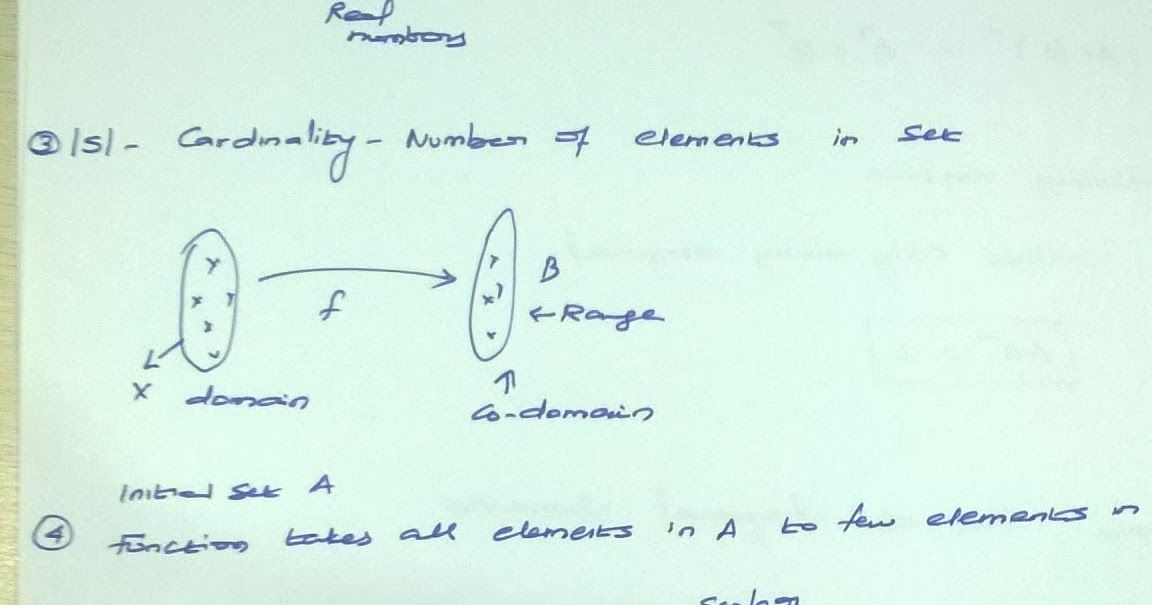 Real
numbers
③ |S| - Cardinality - Number of elements in Set
f
B
← Range
X domain
↑
Co-domain
Initial Set A
④ function takes all elements in A to few elements in